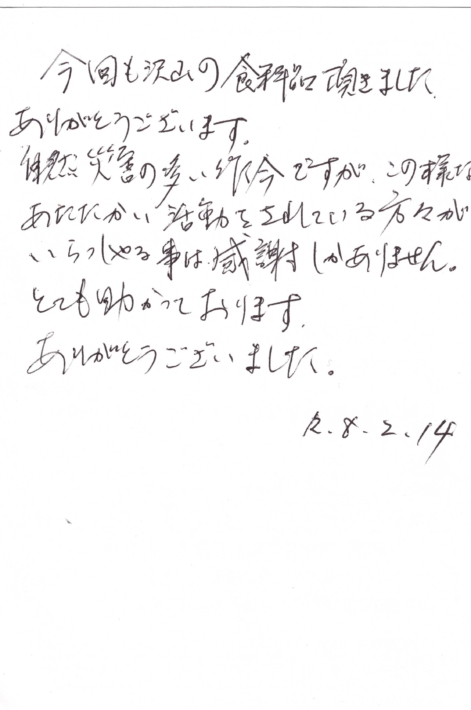 今回も沢山の食料品頂きました.
ありがとうございます。
自然災害の多い昨今ですが、この様な
あたたかい活動をされている方々が
いらっしゃる事は感謝しかありません。
とても助かっております.
ありがとうございました。
R.8.2.14